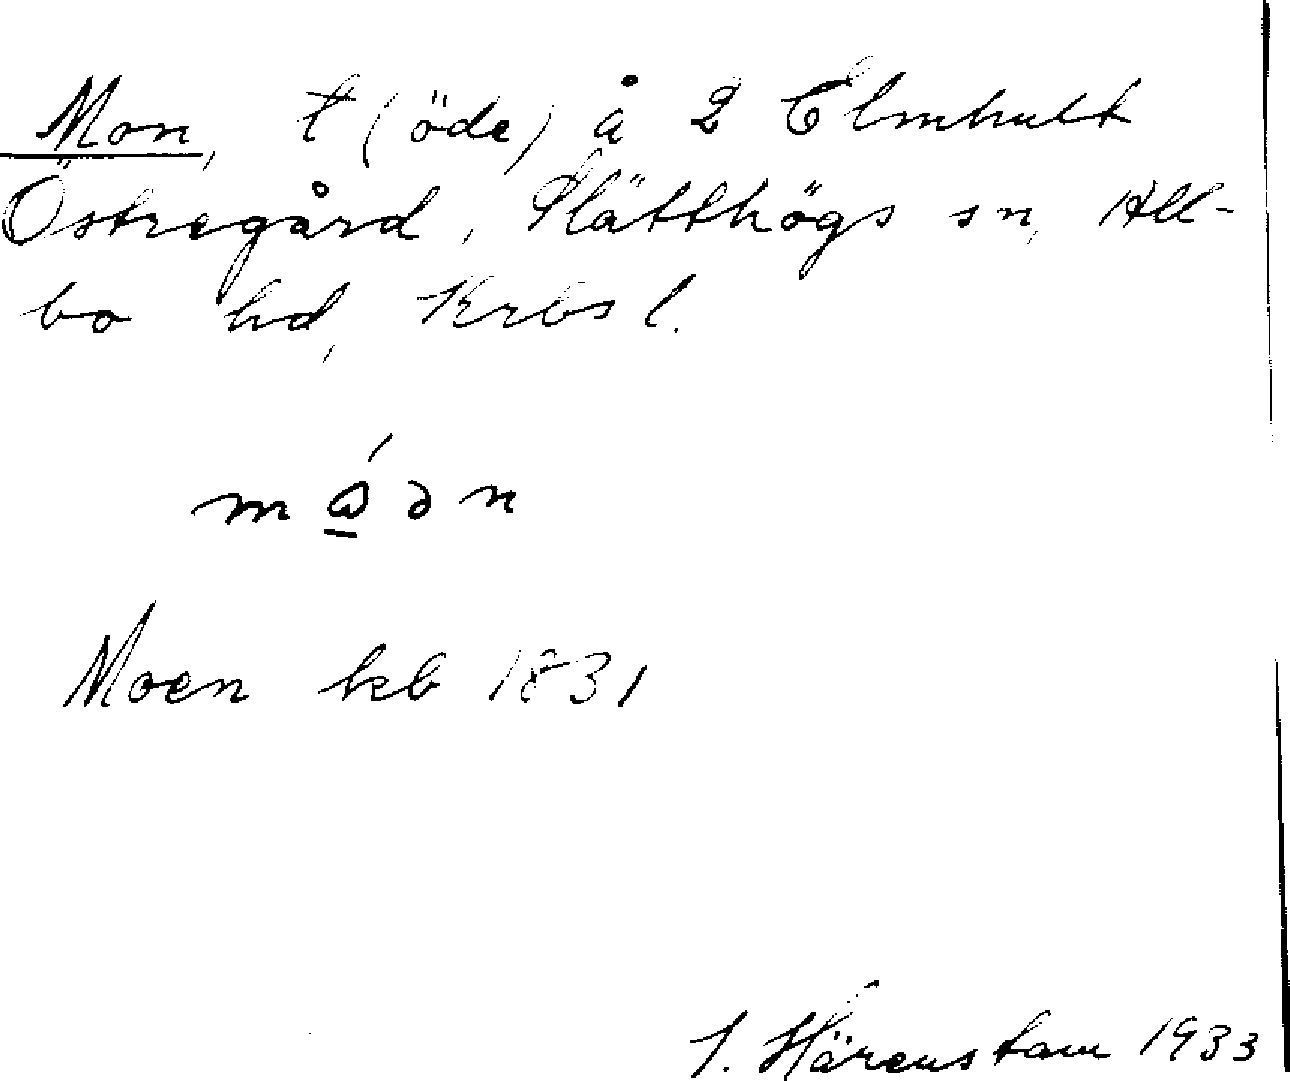 Mon, t (öde) å 2 Elmhult
Östregård, Slätthögs sn, All-
bo hd, Krbs l.
mǻ̱ən
Moen kb 1831
J. Härenstam 1933